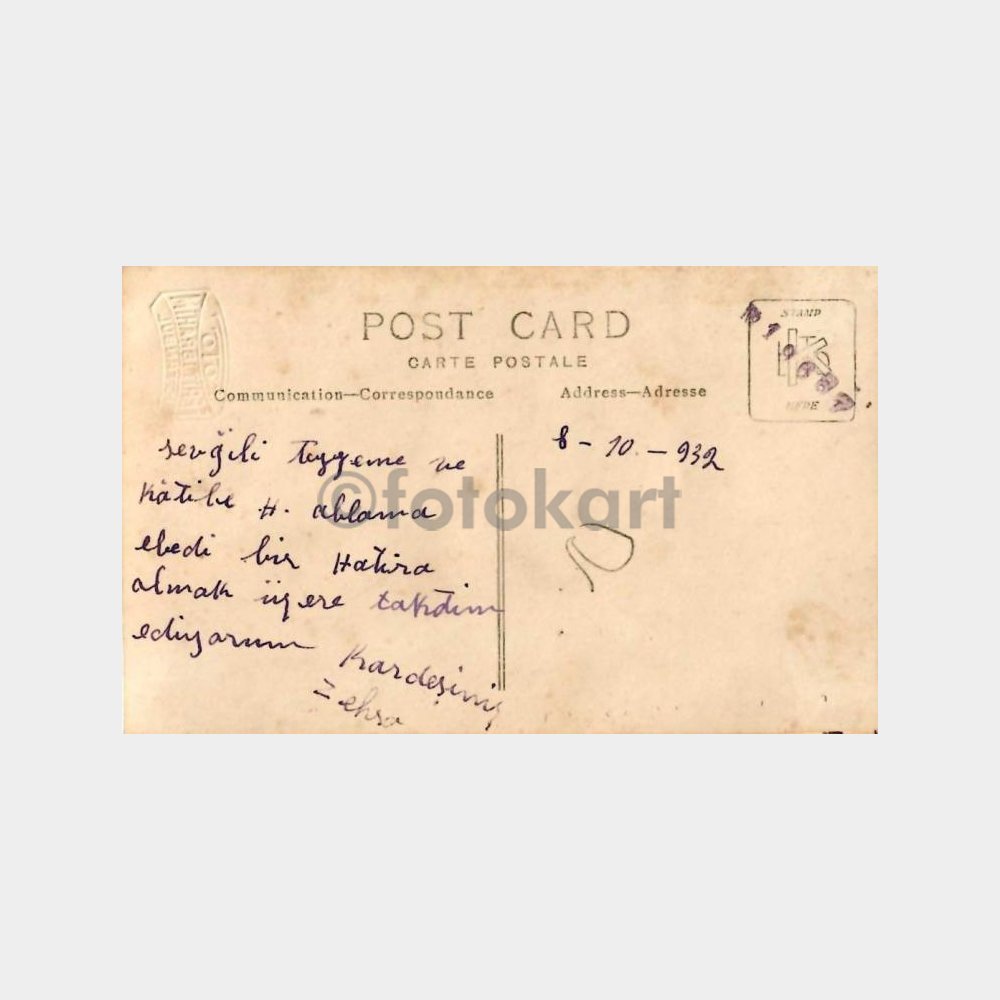 POST CARD
CARTE POSTALE
Communication—Correspondance
Address—Adresse
STAMP
HERE
FOTO
8 - 10. - 932
sevğili teyzeme ve
Kâtibe H. ablama
ebedi bir Hatıra
olmak üzere takdim
ediyorum
Kardeşiniz
Zehra
©fotokart